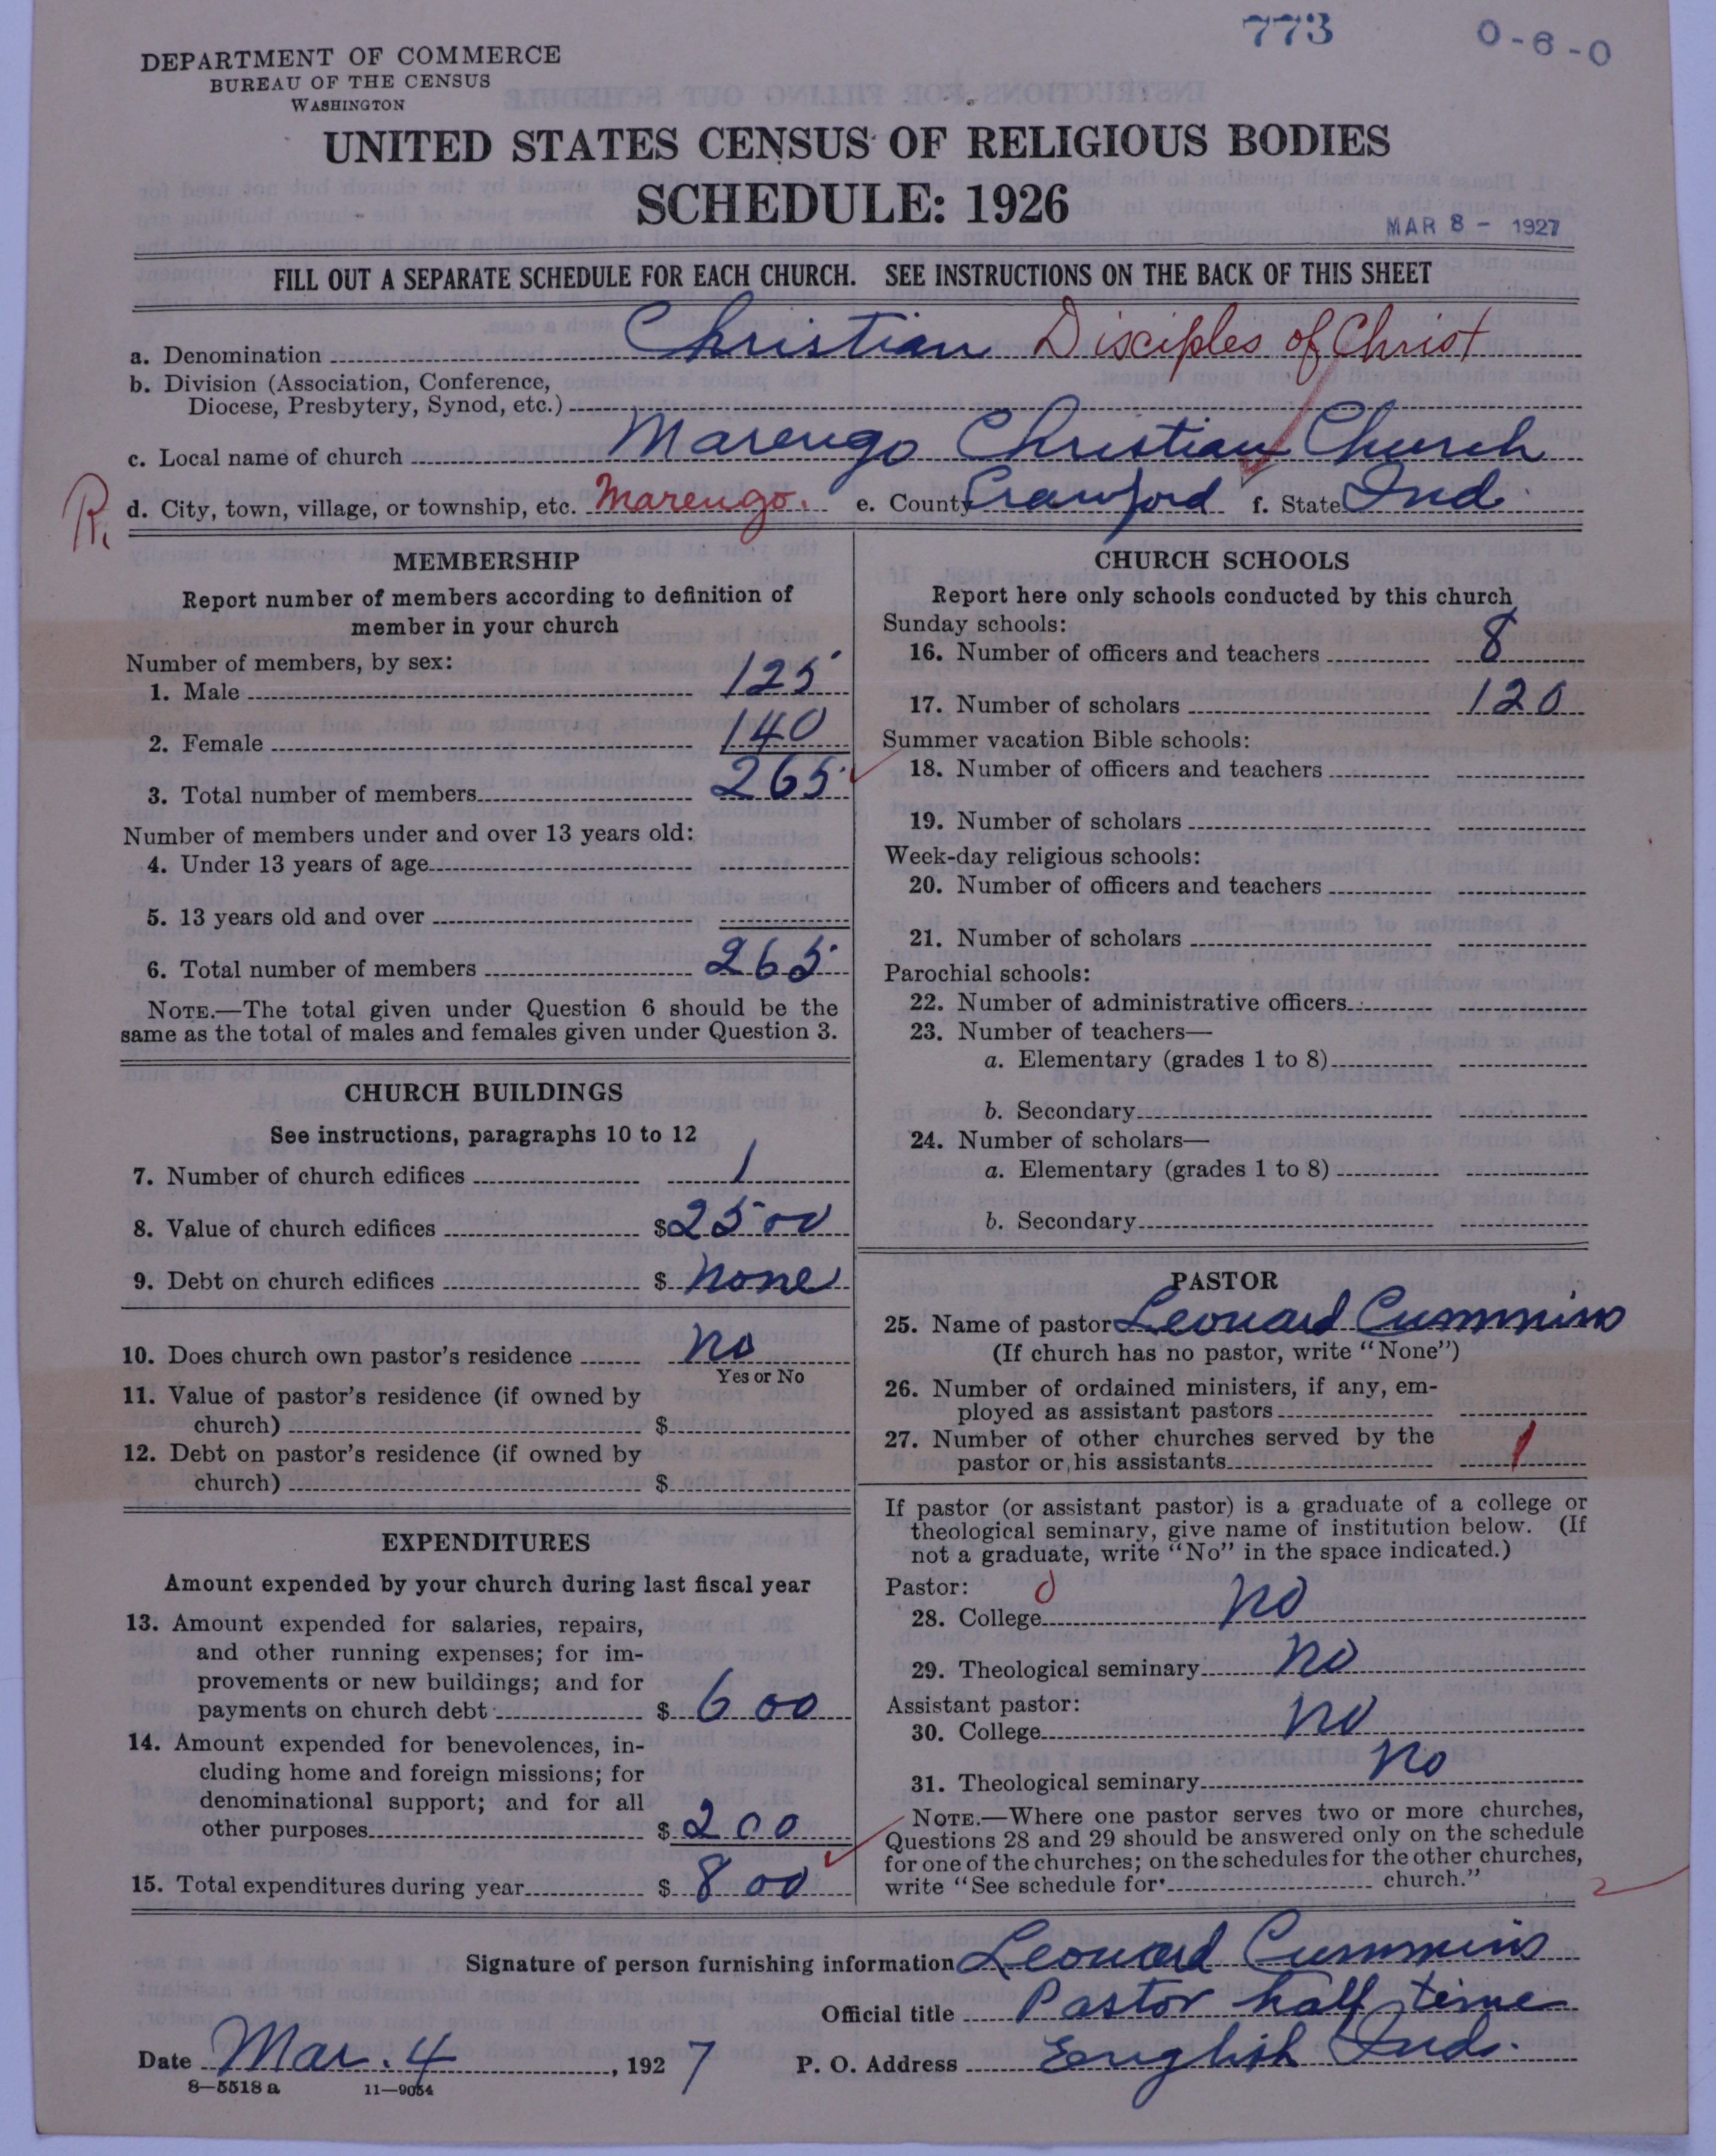 773
0-6-0
DEPARTMENT OF COMMERCE
BUREAU OF THE CENSUS
WASHINGTON
UNITED STATES CENSUS OF RELIGIOUS BODIES
SCHEDULE: 1926
MAR 8 - 1927
FILL OUT A SEPARATE SCHEDULE FOR EACH CHURCH. SEE INSTRUCTIONS ON THE BACK OF THIS SHEET
a. Denomination Christian Disciples of Christ
b. Division (Association, Conference,
Diocese, Presbytery, Synod, etc.)
c. Local name of church Marengo Christian Church
R. d. City, town, village, or township, etc. Marengo. e. County Crawford f. State Ind.
MEMBERSHIP
Report number of members according to definition of
member in your church
Number of members, by sex:
1. Male 125
2. Female 140
3. Total number of members 265
Number of members under and over 13 years old:
4. Under 13 years of age
5. 13 years old and over
6. Total number of members 265
NOTE.—The total given under Question 6 should be the
same as the total of males and females given under Question 3.
CHURCH BUILDINGS
See instructions, paragraphs 10 to 12
7. Number of church edifices 1
8. Value of church edifices $2500
9. Debt on church edifices $ None
10. Does church own pastor's residence No
Yes or No
11. Value of pastor's residence (if owned by
church) $
12. Debt on pastor's residence (if owned by
church) $
EXPENDITURES
Amount expended by your church during last fiscal year
13. Amount expended for salaries, repairs,
and other running expenses; for im-
provements or new buildings; and for
payments on church debt $ 600
14. Amount expended for benevolences, in-
cluding home and foreign missions; for
denominational support; and for all
other purposes $ 200
15. Total expenditures during year $ 800
CHURCH SCHOOLS
Report here only schools conducted by this church
Sunday schools:
16. Number of officers and teachers 8
17. Number of scholars 120
Summer vacation Bible schools:
18. Number of officers and teachers
19. Number of scholars
Week-day religious schools:
20. Number of officers and teachers
21. Number of scholars
Parochial schools:
22. Number of administrative officers
23. Number of teachers—
a. Elementary (grades 1 to 8)
b. Secondary
24. Number of scholars—
a. Elementary (grades 1 to 8)
b. Secondary
PASTOR
25. Name of pastor Leonard Cummins
(If church has no pastor, write "None")
26. Number of ordained ministers, if any, em-
ployed as assistant pastors
27. Number of other churches served by the
pastor or his assistants 1
If pastor (or assistant pastor) is a graduate of a college or
theological seminary, give name of institution below. (If
not a graduate, write "No" in the space indicated.)
Pastor: 0
28. College No
29. Theological seminary No
Assistant pastor:
30. College No
31. Theological seminary No
NOTE.—Where one pastor serves two or more churches,
Questions 28 and 29 should be answered only on the schedule
for one of the churches; on the schedules for the other churches,
write "See schedule for church."
Signature of person furnishing information Leonard Cummins
Official title Pastor half time
Date Mar. 4, 1927 P. O. Address English Ind.
8—5518 a 11—9054